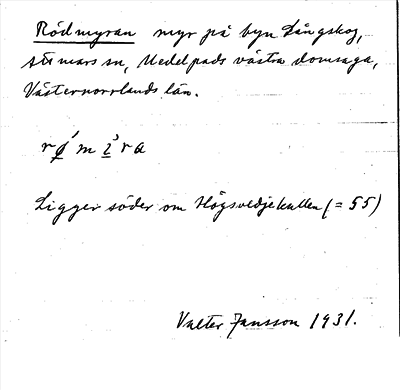 Rödmyran myr på byn Långskog,
Stöde sn, Medelpads västra domsaga,
Västernorrlands län.
Ligger söder om Högsvedjekullen (= 55)
Valter Jansson 1931.